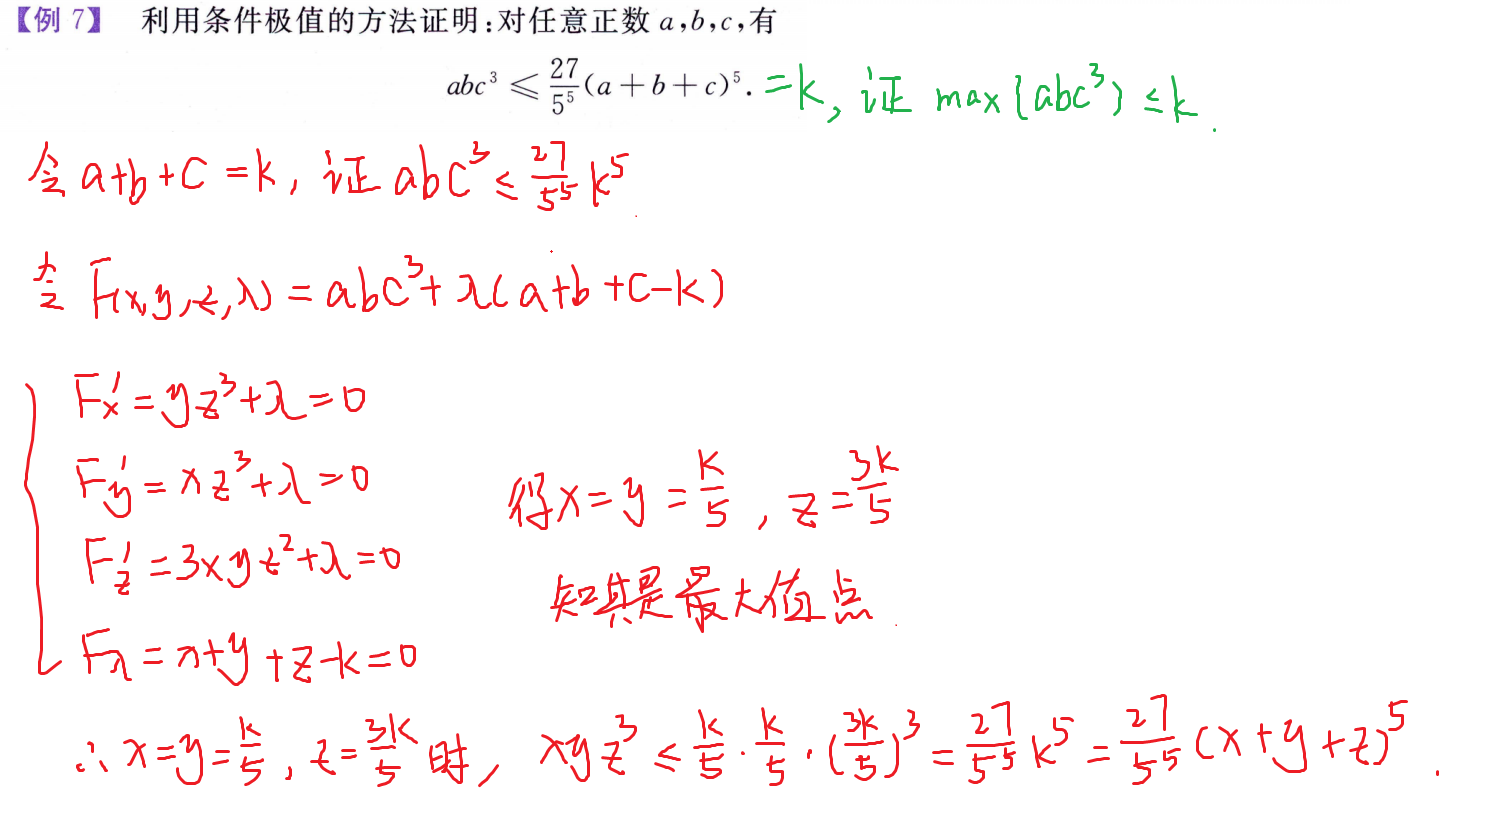 【例 7】 利用条件极值的方法证明:对任意正数 a,b,c,有
abc³ ≤ 27/5⁵ (a+b+c)⁵. =k, 证 max{abc³} ≤ k.
令 a+b+c=k, 证 abc³ ≤ 27/5⁵ k⁵
令 F(x,y,z,λ) = abc³+λ(a+b+c-k)
F'x = yz³+λ=0
F'y = xz³+λ=0
得 x=y=k/5, z=3k/5
F'z = 3xyz²+λ=0
知其是最大值点.
Fλ = x+y+z-k=0
∴ x=y=k/5, z=3k/5 时, xyz³ ≤ k/5·k/5·(3k/5)³ = 27/5⁵ k⁵ = 27/5⁵ (x+y+z)⁵.